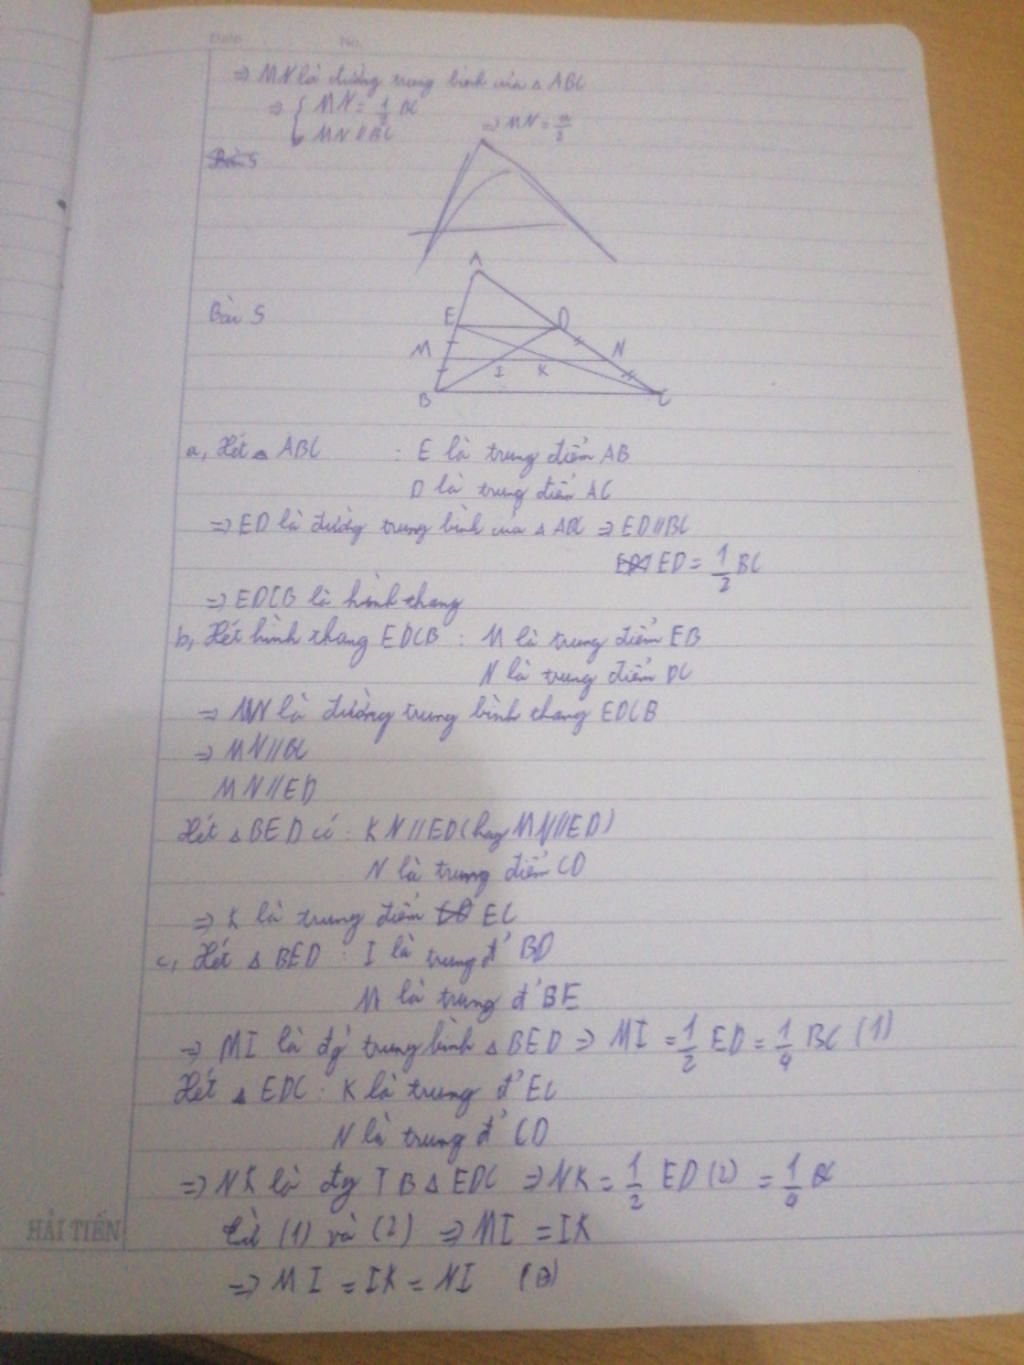 Date No.
⇒ MN là đường trung bình của △ ABC
⇒ { MN = 1/2 BC
MN // BC ⇒ MN = a/2
Bài 5
A
Bài 5
E D
M N
I K
B C
a, Xét △ ABC : E là trung điểm AB
D là trung điểm AC
⇒ ED là đường trung bình của △ ABC ⇒ ED // BC
ED = 1/2 BC
⇒ EDCB là hình thang
b, Xét hình thang EDCB : M là trung điểm EB
N là trung điểm DC
⇒ MN là đường trung bình thang EDCB
⇒ MN // BC
MN // ED
Xét △ BED có : KN // ED (hay MN // ED)
N là trung điểm CD
⇒ K là trung điểm EC
c, Xét △ BED : I là trung đ' BD
M là trung đ' BE
⇒ MI là đg trung bình △ BED ⇒ MI = 1/2 ED = 1/4 BC (1)
Xét △ EDC : K là trung đ' EC
N là trung đ' CD
⇒ NK là đg TB △ EDC ⇒ NK = 1/2 ED (2) = 1/4 BC
Từ (1) và (2) ⇒ MI = IK
⇒ MI = IK = NI
HẢI TIẾN